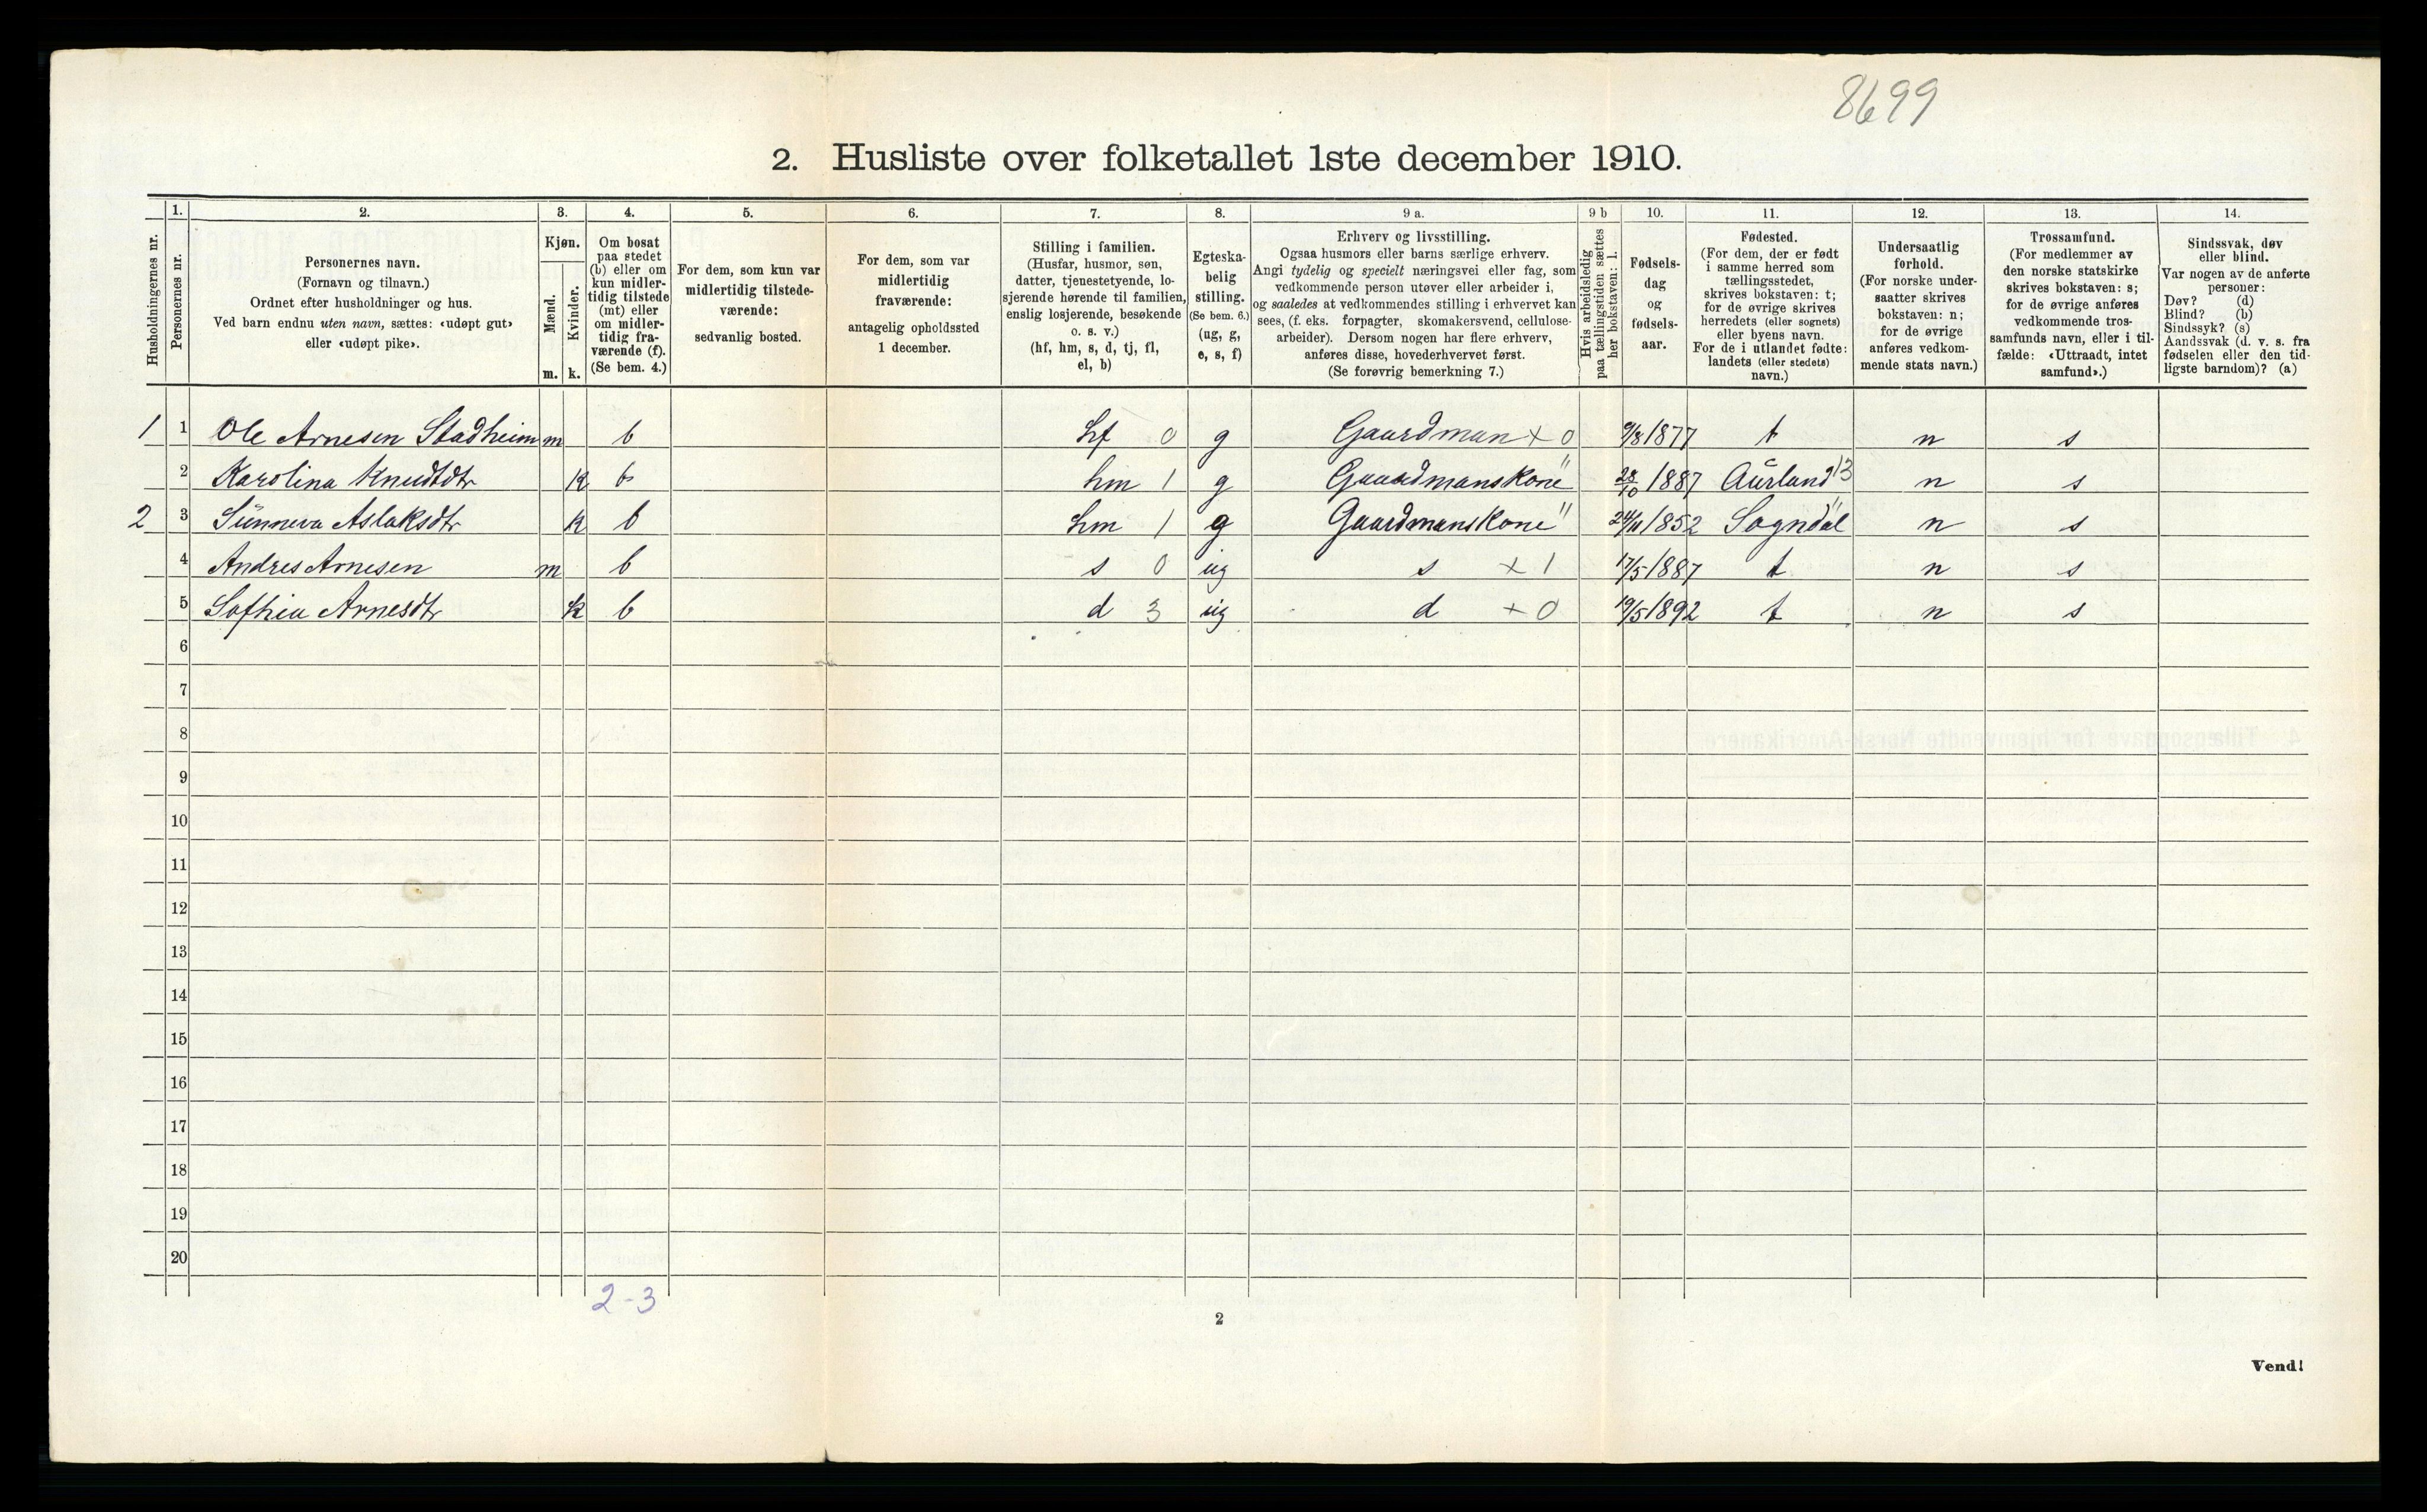 8699
2. Husliste over folketallet 1ste december 1910.
Husholdningernes nr.
1.
Personernes nr.
2.
Personernes navn.
(Fornavn og tilnavn.)
Ordnet efter husholdninger og hus.
Ved barn endnu uten navn, sættes: «udøpt gut»
eller «udøpt pike».
3.
Kjøn.
Mænd.
Kvinder.
m. k.
4.
Om bosat
paa stedet
(b) eller om
kun midler-
tidig tilstede
(mt) eller
om midler-
tidig fra-
værende (f).
(Se bem. 4.)
5.
For dem, som kun var
midlertidig tilstede-
værende:
sedvanlig bosted.
6.
For dem, som var
midlertidig
fraværende:
antagelig opholdssted
1 december.
7.
Stilling i familien.
(Husfar, husmor, søn,
datter, tjenestetyende, lo-
sjerende hørende til familien,
enslig losjerende, besøkende
o. s. v.)
(hf, hm, s, d, tj, fl,
el, b)
8.
Egteska-
belig
stilling.
(Se bem. 6.)
(ug, g,
e, s, f)
9 a.
Erhverv og livsstilling.
Ogsaa husmors eller barns særlige erhverv.
Angi tydelig og specielt næringsvei eller fag, som
vedkommende person utøver eller arbeider i,
og saaledes at vedkommendes stilling i erhvervet kan
sees, (f. eks. forpagter, skomakersvend, cellulose-
arbeider). Dersom nogen har flere erhverv,
anføres disse, hovederhvervet først.
(Se forøvrig bemerkning 7.)
9 b
Hvis arbeidsledig
paa tællingstiden sættes
her bokstaven: l.
10.
Fødsels-
dag
og
fødsels-
aar.
11.
Fødested.
(For dem, der er født
i samme herred som
tællingsstedet,
skrives bokstaven: t;
for de øvrige skrives
herredets (eller sognets)
eller byens navn.
For de i utlandet fødte:
landets (eller stedets)
navn.)
12.
Undersaatlig
forhold.
(For norske under-
saatter skrives
bokstaven: n;
for de øvrige
anføres vedkom-
mende stats navn.)
13.
Trossamfund.
(For medlemmer av
den norske statskirke
skrives bokstaven: s;
for de øvrige anføres
vedkommende tros-
samfunds navn, eller i til-
fælde: «Uttraadt, intet
samfund».)
14.
Sindssvak, døv
eller blind.
Var nogen av de anførte
personer:
Døv? (d)
Blind? (b)
Sindssyk? (s)
Aandssvak (d. v. s. fra
fødselen eller den tid-
ligste barndom)? (a)
1 1 Ole Arnesen Stadheim m b hf 0 g Gaardman x 0 9/8 1877 t n s
2 Karolina Knudtdtr k b hm 1 g Gaardmanskone " 28/10 1887 Aurland 13 n s
2 3 Sünneva Aslaksdtr k b hm 1 g Gaardmanskone " 24/11 1852 Sogndal " n s
4 Andres Arnesen m b s 0 ug s x 1 17/5 1887 t n s
5 Sofhia Arnesdtr k b d 3 ug d + 0 19/5 1892 t n s
6
7
8
9
10
11
12
13
14
15
16
17
18
19
20
2-3
2
Vend!